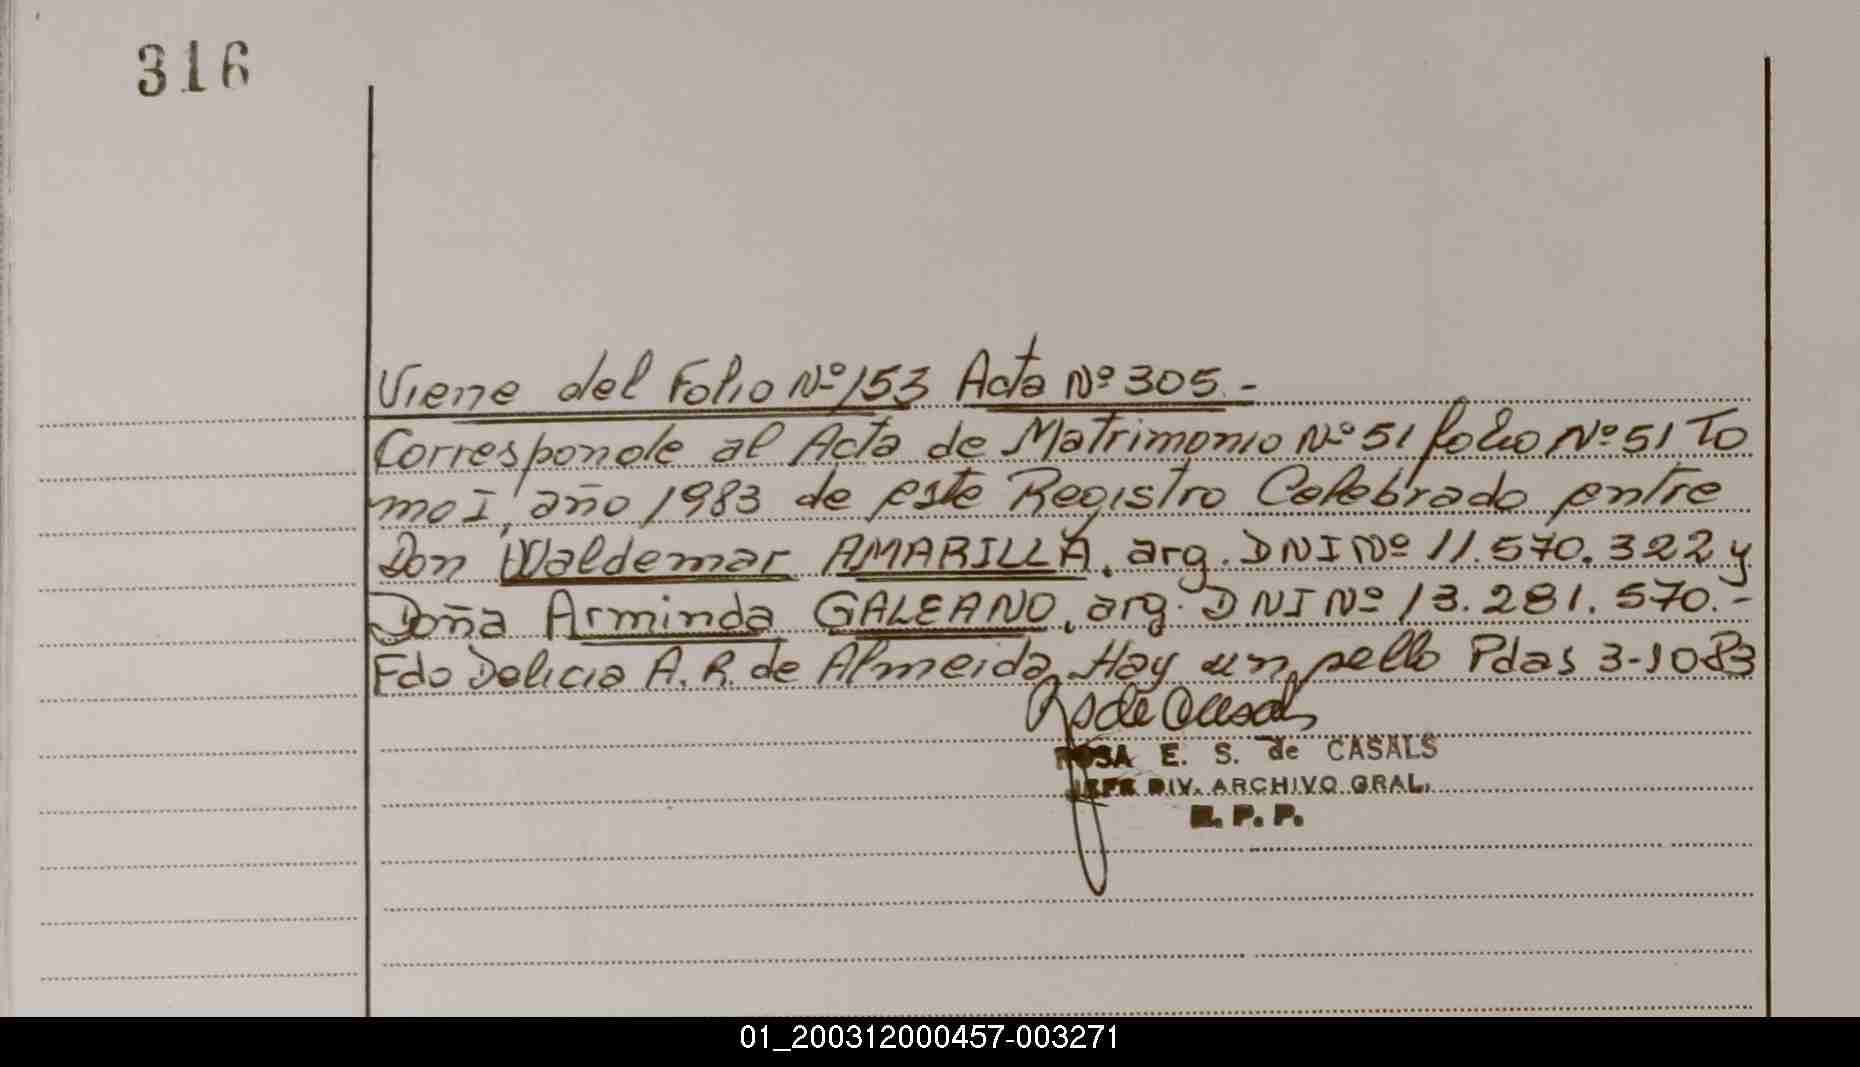 316
Viene del Folio Nº 153 Acta Nº 305.-
Corresponde al Acta de Matrimonio Nº 51 folio Nº 51 To
mo I, año 1983 de este Registro Celebrado entre
Don Waldemar AMARILLA, arg. DNI Nº 11.570.322 y
Doña Arminda GALEANO, arg. DNI Nº 13.281.570.-
Fdo Delicia A. R. de Almeida Hay un sello Pdas 3-1083
ROSA E. S. de CASALS
JEFE DIV. ARCHIVO GRAL.
R. P. P.
01_200312000457-003271